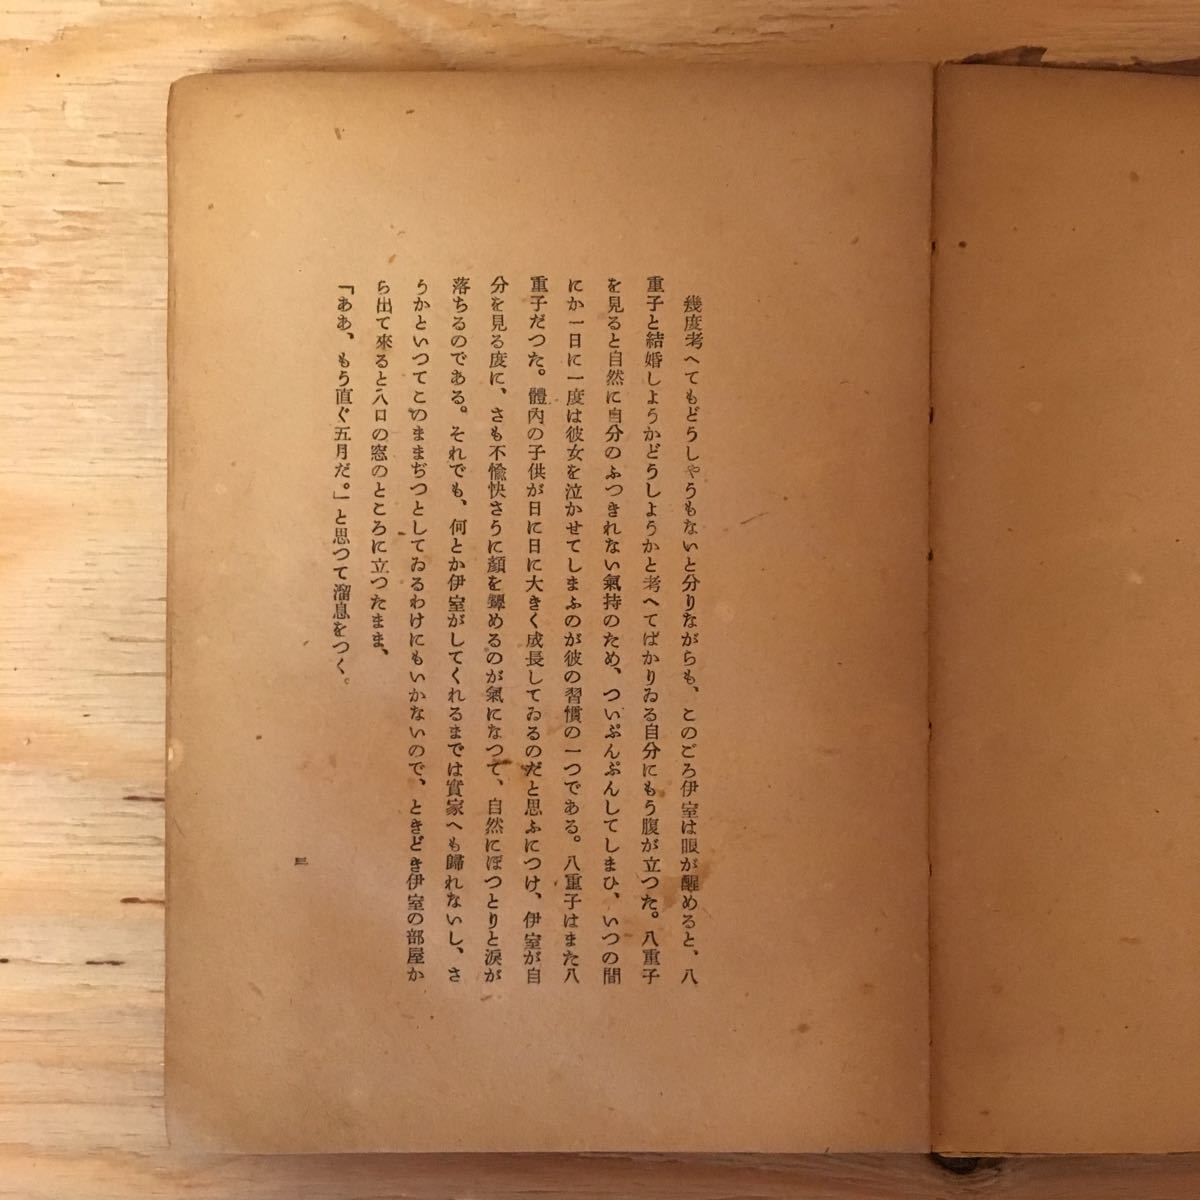 幾度考へてもどうしやうもないと分りながらも、このごろ伊室は眼が醒めると、八
重子と結婚しようかどうしようかと考へてばかりゐる自分にもう腹が立つた。八重子
を見ると自然に自分のふつきれない氣持のため、ついぷんぷんしてしまひ、いつの間
にか一日に一度は彼女を泣かせてしまふのが彼の習慣の一つである。八重子はまた八
重子だつた。體內の子供が日に日に大きく成長してゐるのだと思ふにつけ、伊室が自
分を見る度に、さも不愉快さうに顏を顰めるのが氣になつて、自然にぽつとりと淚が
落ちるのである。それでも、何とか伊室がしてくれるまでは實家へも歸れないし、さ
うかといつてこのままぢつとしてゐるわけにもいかないので、ときどき伊室の部屋か
ら出て來ると八口の窓のところに立つたまま、
「ああ、もう直ぐ五月だ。」と思つて溜息をつく。
三